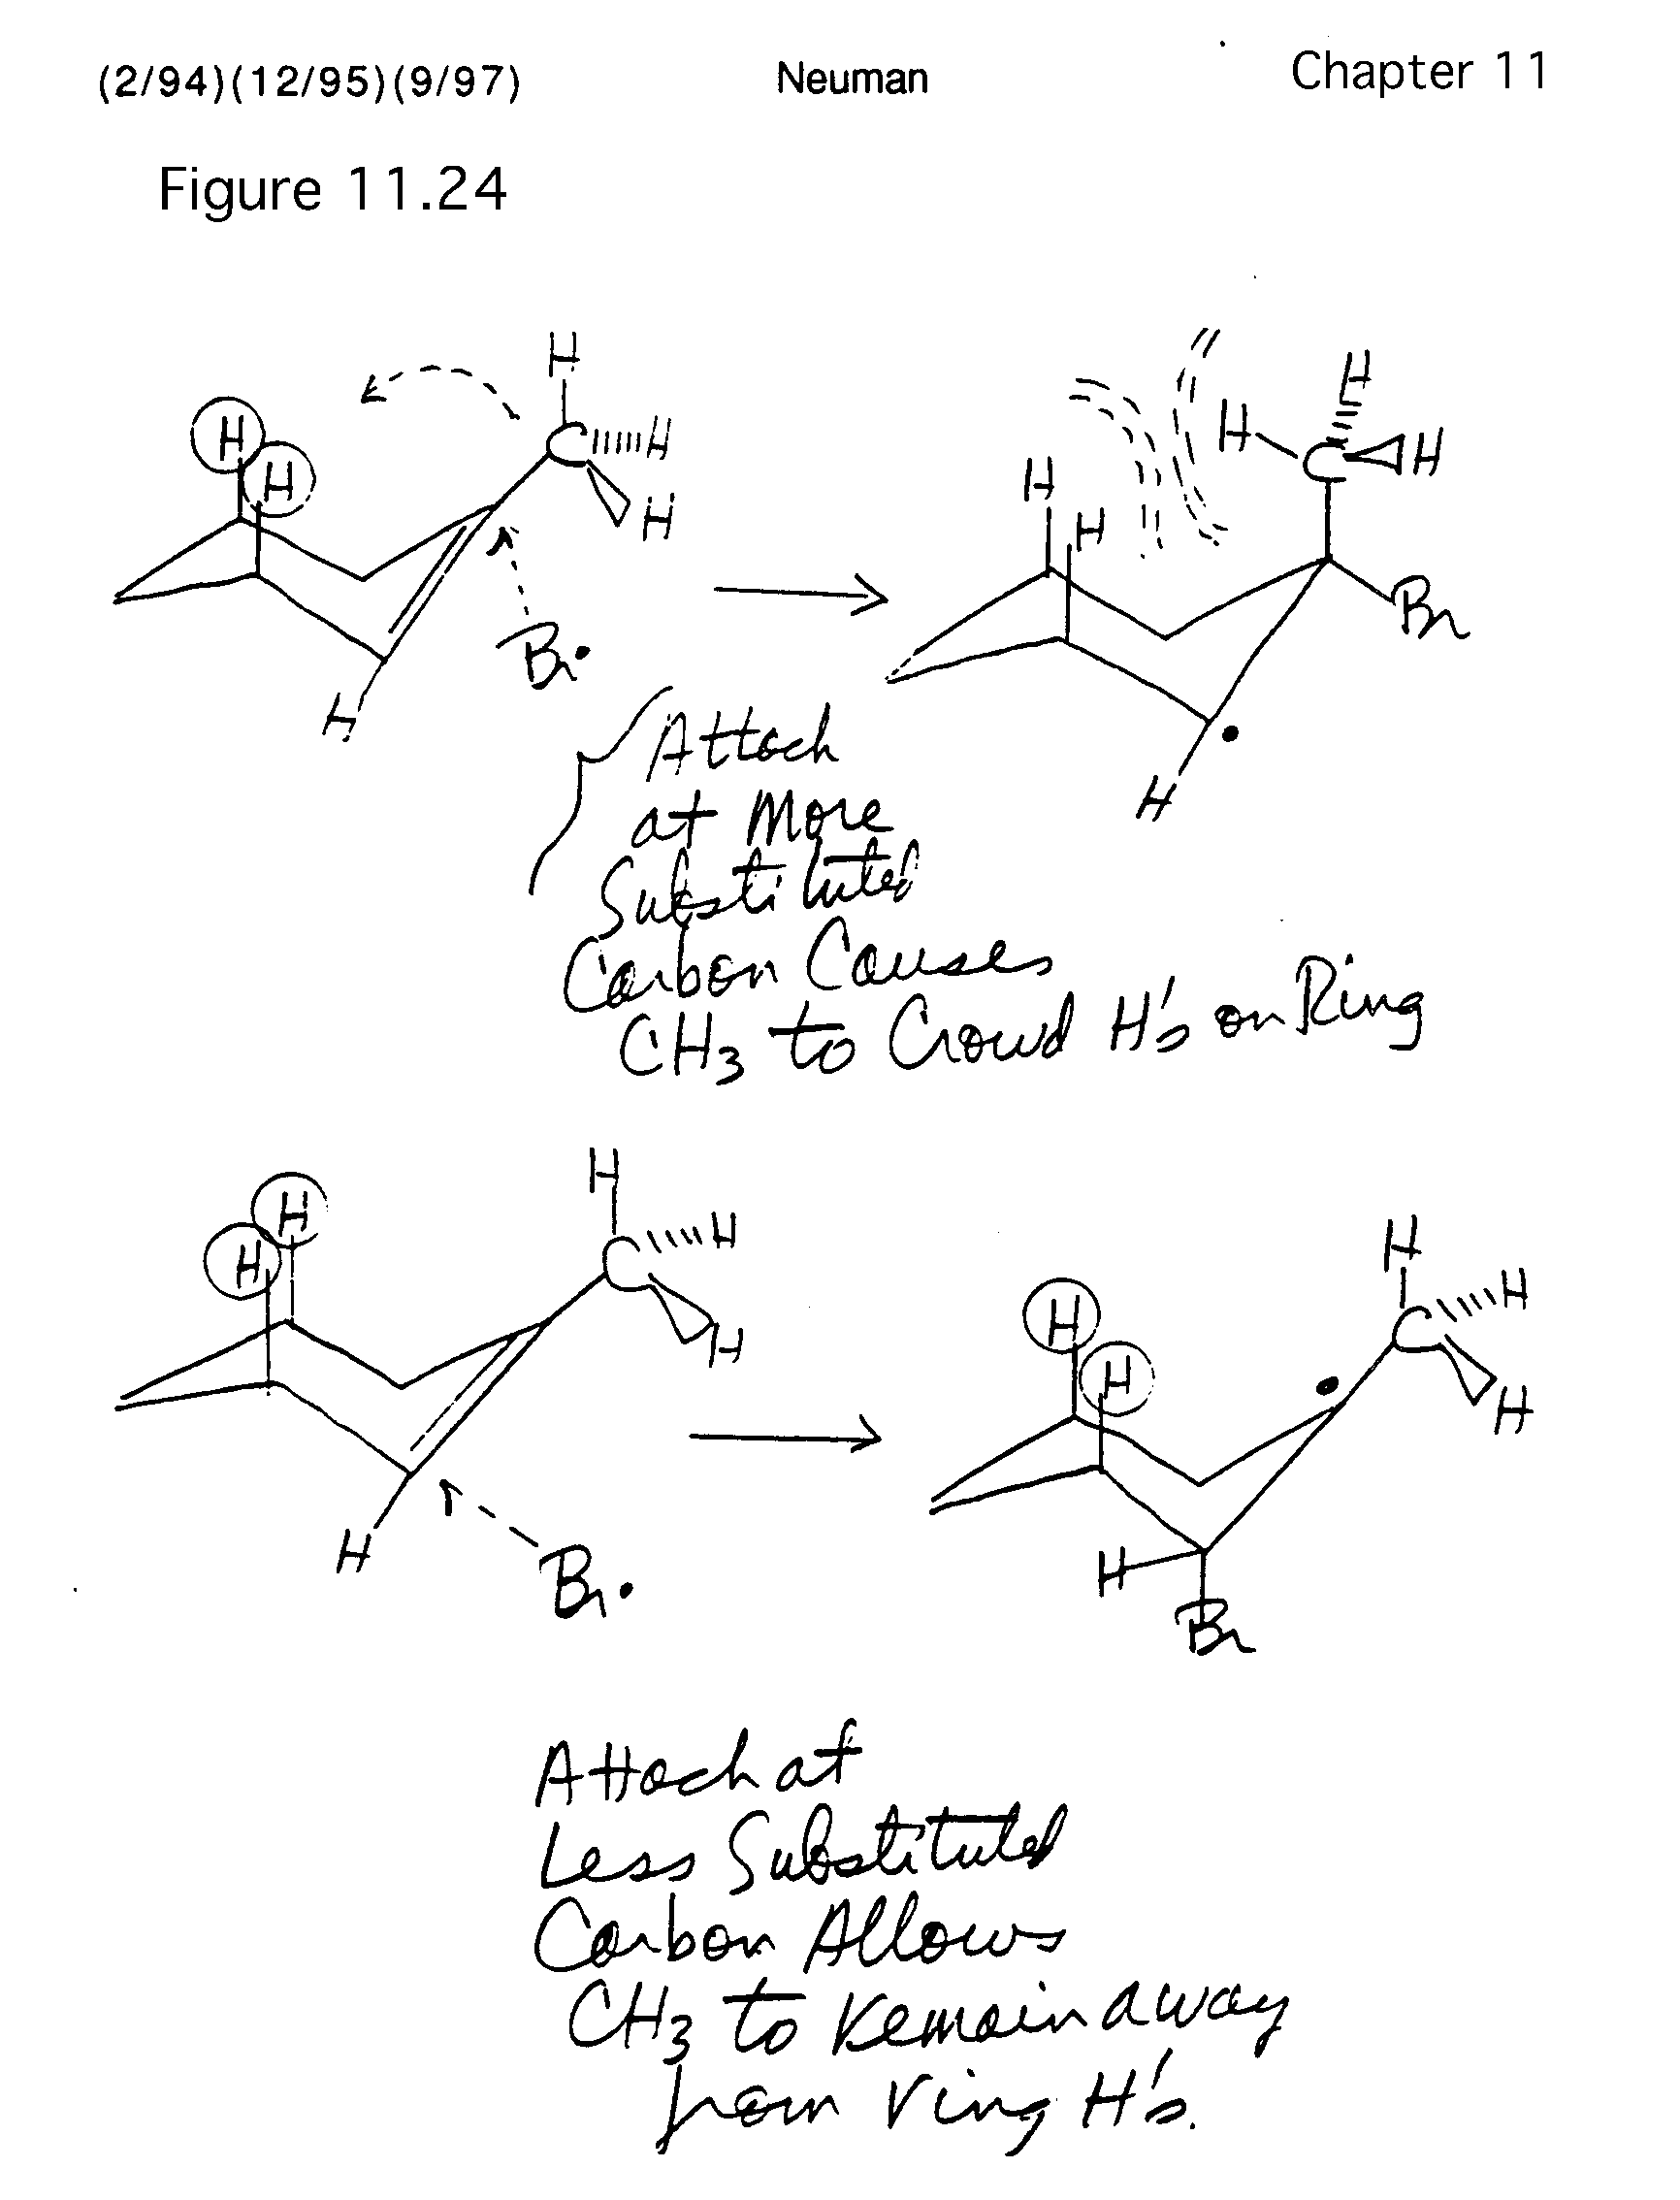 (2/94)(12/95)(9/97) Neuman Chapter 11
Figure 11.24
H
H C H
H H
Br•
H
H
H C H
H
H
Br
•
H
Attack
at More
Substituted
Carbon Causes
CH3 to Crowd H's on Ring
H
H C H
H H
H
Br•
H
H C H
H H
•
H
Br
Attack at
Less Substituted
Carbon Allows
CH3 to remain away
from ring H's.